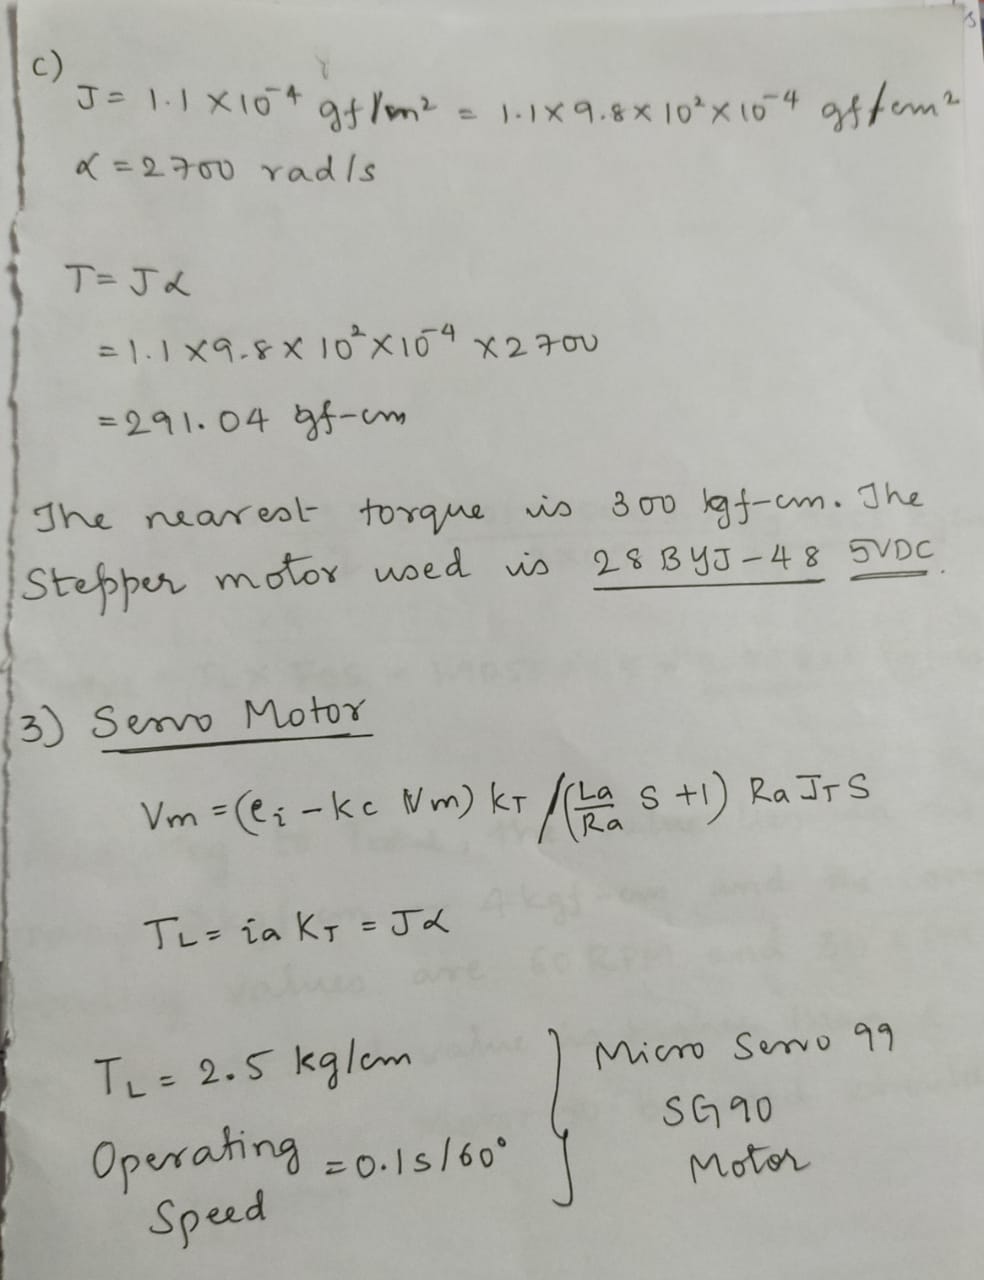 c)
J = 1.1 × 10⁻⁴ gf/m² = 1.1 × 9.8 × 10² × 10⁻⁴ gf/cm²
α = 2700 rad/s
T = Jα
= 1.1 × 9.8 × 10² × 10⁻⁴ × 2700
= 291.04 gf-cm
The nearest torque is 300 kgf-cm. The
Stepper motor used is 28BYJ-48 5VDC.
3) Servo Motor
Vm = (ei - kc Vm) kT / (La/Ra S + 1) Ra JT S
TL = ia KT = Jα
TL = 2.5 kg/cm
Operating Speed = 0.1s/60°
Micro Servo 99
SG90
Motor